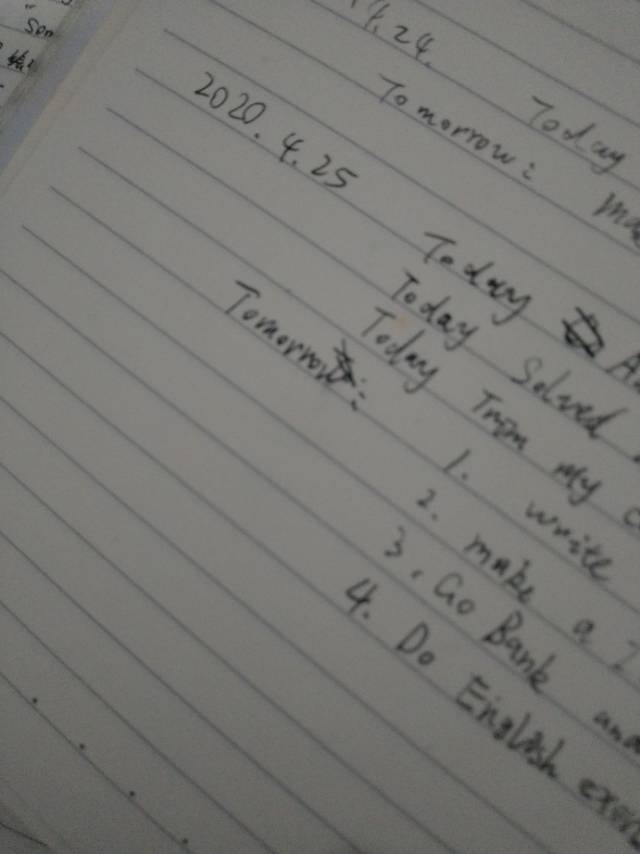 4.24. Today
Tomorrow:
2020.4.25
Today
Today Solved
Today Trom my
Tomorrow:
1. write
2. make a
3. Go Bank
4. Do English